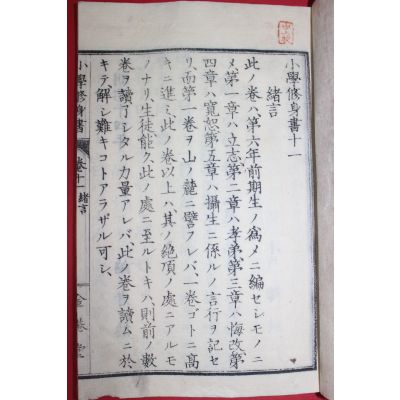 小學修身書十一
緒言
此ノ卷ハ第六年前期生ノ爲メニ編セシモノニ
メ第一章ハ立志第二章ハ孝弟第三章ハ悔改第
四章ハ寬恕第五章ハ攝生ニ係ルノ言行ヲ記セ
リ、而第一卷ヲ山ノ麓ニ譬フレバ、一卷コトニ高
キニ進ミ此ノ卷以上ハ其ノ絶頂ノ處ニアルモ
ノナリ生徒能久此ノ處ニ至ルトキハ則前ノ數
卷ヲ讀了シタル力量アレバ、此ノ卷ヲ讀ムニ於
キテ解シ難キコトアラザル可シ、
小學修身書
卷十一緒言
金港堂